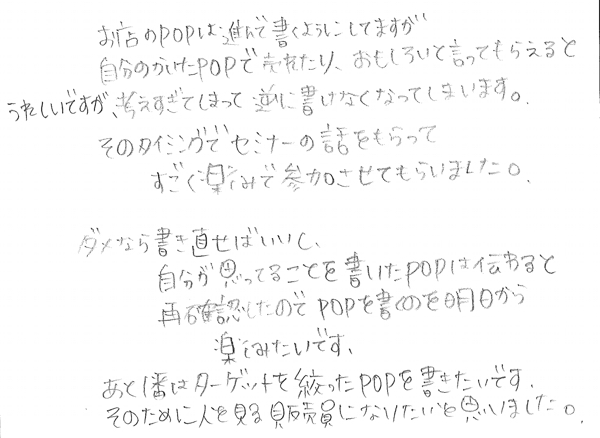 お店のPOPは進んで書くようにしてますが
自分のかいたPOPで売れたり、おもしろいと言ってもらえると
うれしいですが、考えすぎてしまって逆に書けなくなってしまいます。
そのタイミングでセミナーの話をもらって
すごく楽しみで参加させてもらいました。
ダメなら書き直せばいいし、
自分が思ってることを書いたPOPは伝わると
再確認したのでPOPを書くのを明日から
楽しみたいです、
あと1番はターゲットを絞ったPOPを書きたいです。
そのために人を見る販売員になりたいと思いました。